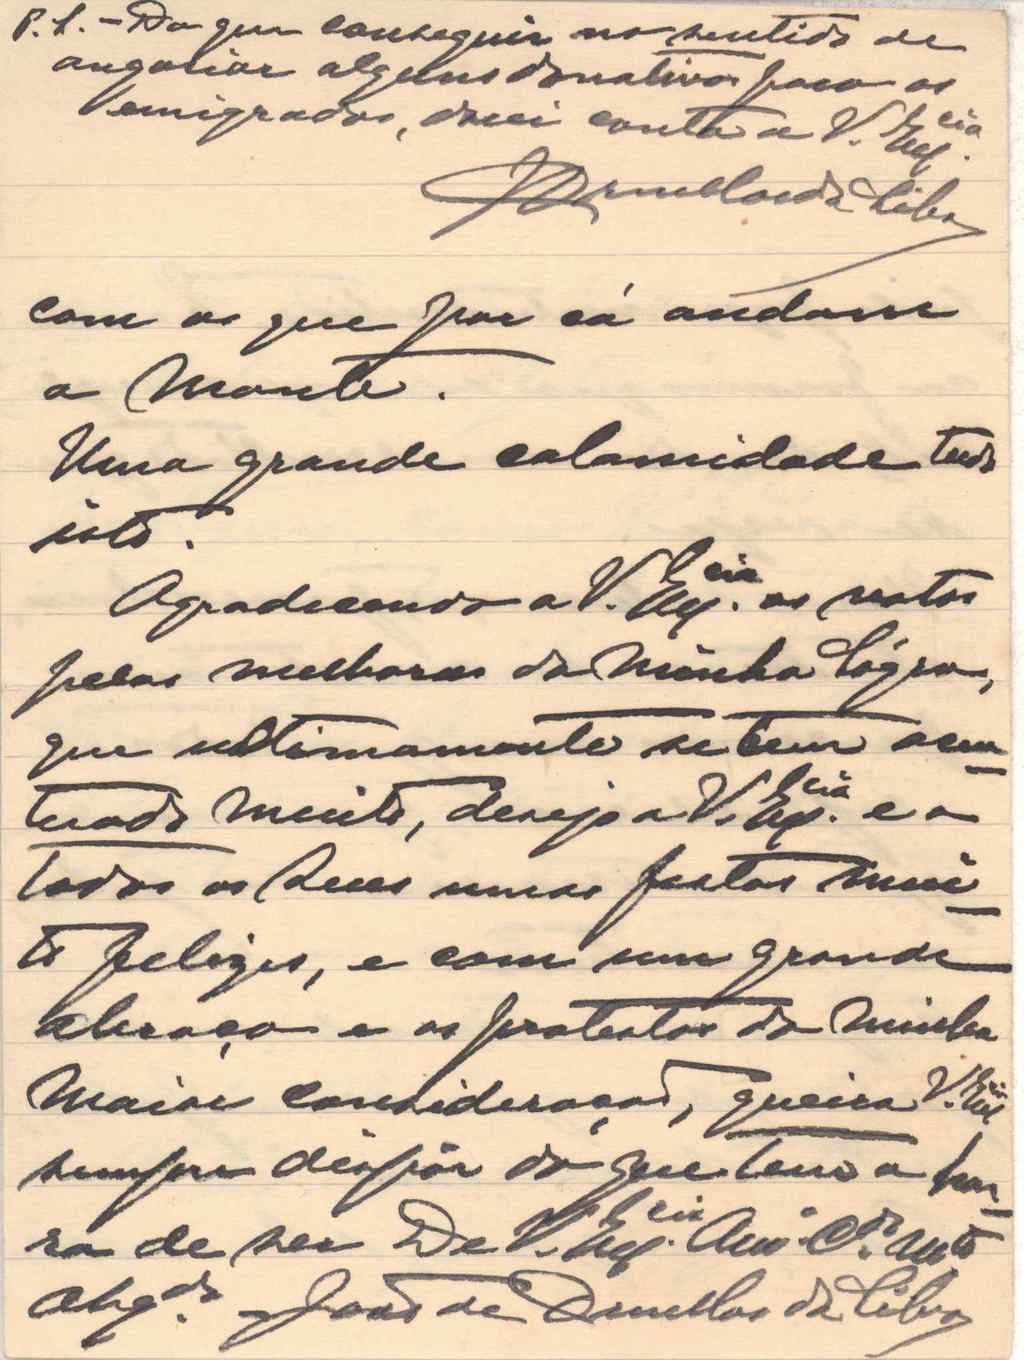 P. S. - Do que conseguir no sentido de
angariar alguns donativos para os
emigrados, darei conta a V. Ex.cia
com os que por cá andam
a monte.
Uma grande calamidade tudo
isto.
Agradecendo a V. Ex.cia os votos
pelas melhoras da minha sógra,
que ultimamente se tem acen-
tuado muito, desejo a V. Ex.cia e a
todos os seus umas festas mui-
to felizes, e com um grande
abraço e os protestos da minha
maior consideração, queira V. Ex.cia
sempre dispôr do que tem a hon-
ra de ser De V. Ex.cia Am.o C.do m.to
Obg.do João de da Silva